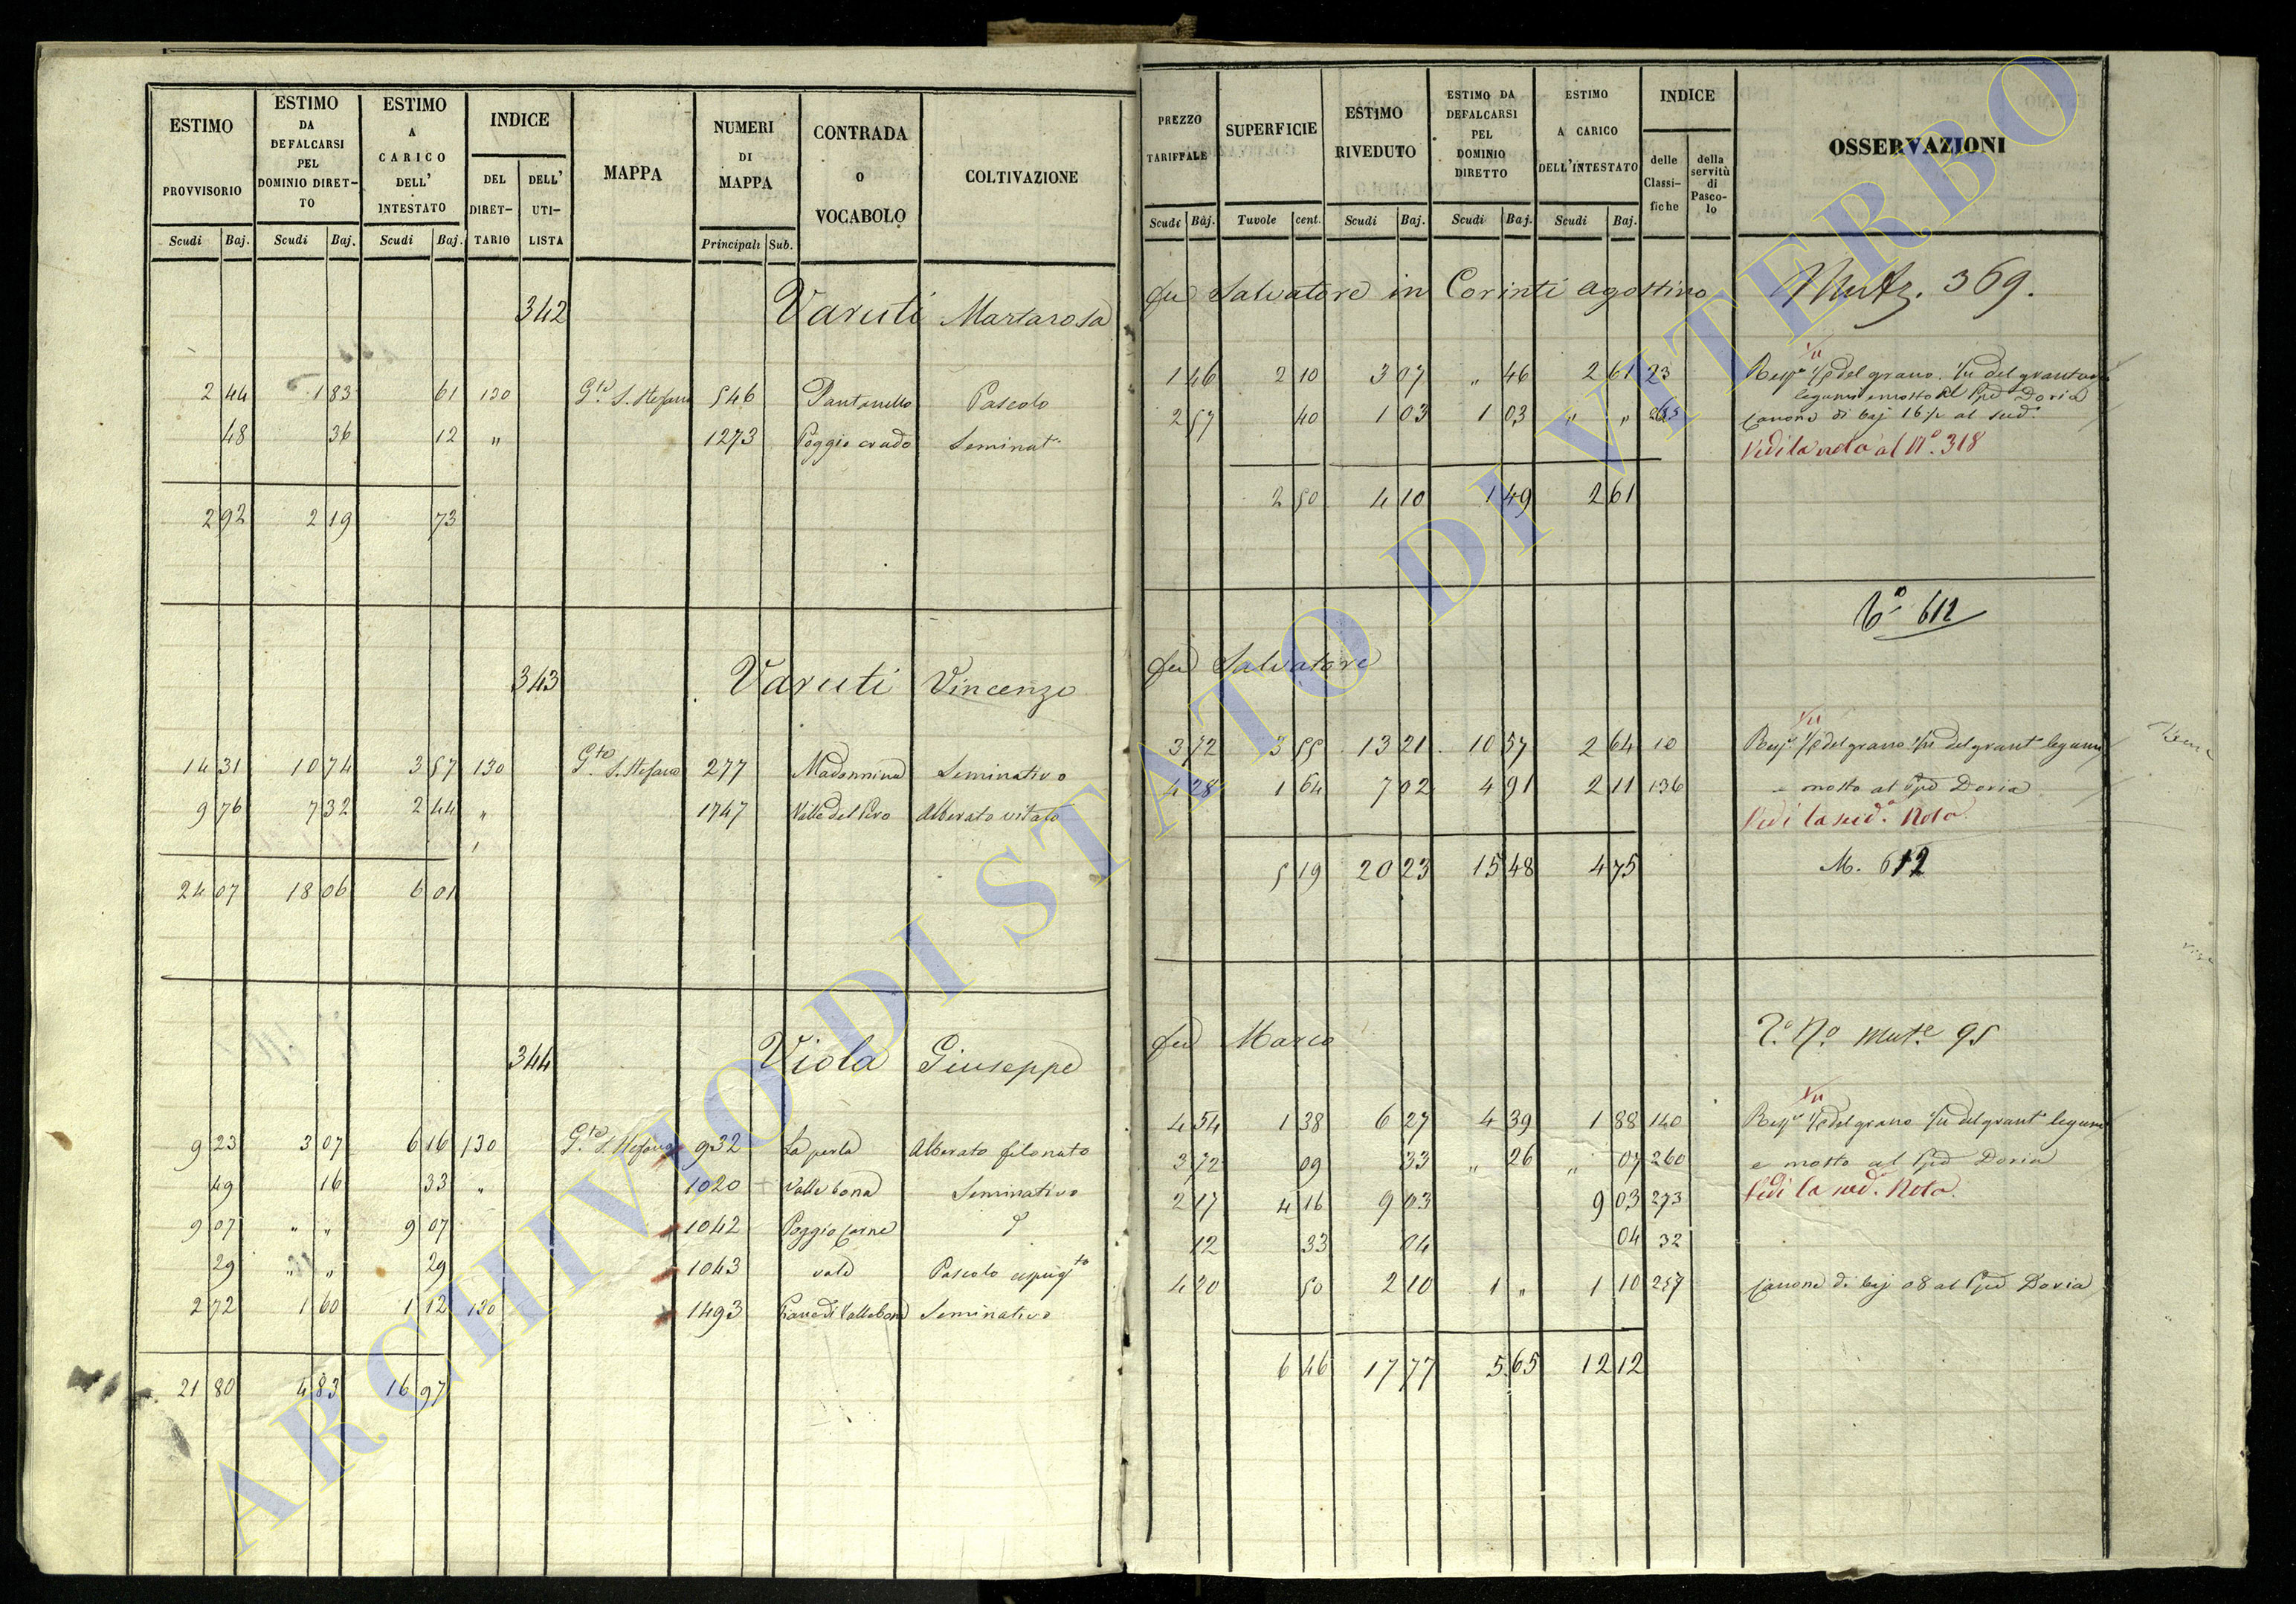 ESTIMO PROVVISORIO
Scudi Baj.
ESTIMO DA DEFALCARSI PEL DOMINIO DIRET-TO
Scudi Baj.
ESTIMO A CARICO DELL' INTESTATO
Scudi Baj.
INDICE
DEL DIRET-TARIO
DELL' UTI-LISTA
MAPPA
NUMERI DI MAPPA
Principali Sub.
CONTRADA O VOCABOLO
COLTIVAZIONE
PREZZO TARIFFALE
Scudi Baj.
SUPERFICIE
Tavole cent.
ESTIMO RIVEDUTO
Scudi Baj.
ESTIMO DA DEFALCARSI PEL DOMINIO DIRETTO
Scudi Baj.
ESTIMO A CARICO DELL'INTESTATO
Scudi Baj.
INDICE
delle Classi-fiche
della servitù di Pasco-lo
OSSERVAZIONI
342 Varuti Martarosa fu Salvatore in Corinti Agostino Mutz. 369.
2 44 1 83 61 130 Gto S. Stefano 546 Pantanello Pascolo 1 46 2 10 3 07 " 46 2 61 23
48 36 12 " 1273 Poggio crudo Seminat 2 57 40 1 03 1 03 " "
Canone di baj 16 1/2 al sud
Vedi la nota al N° 318
2 92 2 19 73 2 50 4 10 1 49 2 61
N° 612
343 Varuti Vincenzo fu Salvatore
14 31 10 74 3 57 130 Gto S. Stefano 277 Madonnina Seminativo 3 72 3 55 13 21 10 57 2 64 10
9 76 7 32 2 44 " 1747 Valle del Pero Alberato vitato 4 28 1 64 7 02 4 91 2 11 136 e mosto al Ppe Doria
Vedi la sud.a Nota.
24 07 18 06 6 01 5 19 20 23 15 48 4 75 M. 612
344 Viola Giuseppe fu Marco Mut.e 95
9 23 3 07 6 16 130 Gto S. Stefano 932 La perla Alberato filonato 4 54 1 38 6 27 4 39 1 88 140
49 16 33 " 1020 Valle bona Seminativo 3 72 09 33 " 26 " 07 260 e mosto al Ppe Doria
9 07 " " 9 07 1042 Poggio Carne 2 17 4 16 9 03 9 03 273 Vedi la sud.a Nota.
29 " " 29 1043 vale Pascolo cespug.to 12 33 04 04 32
2 72 1 60 1 12 130 1493 Piane di Vallebona Seminativo 4 20 50 2 10 1 " 1 10 257 Canone di baj 08 al Ppe Doria
21 80 4 83 16 97 6 46 17 77 5 65 12 12
ARCHIVIO DI STATO DI VITERBO